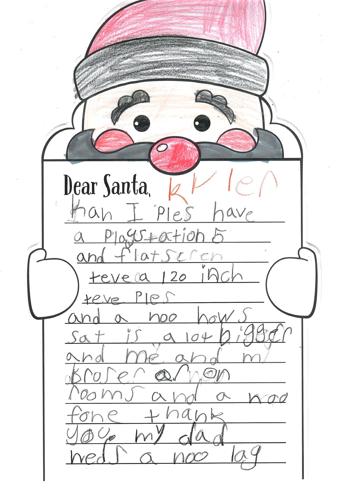 Dear Santa, Kyler
han I Ples have
a Playstation 5
and flatscren
teve a 120 iNch
teve Ples
and a noo hows
sat is a lot bigger
and me and my
broser
rooms and a noo
fone thank
you my dad
neds a noo lag